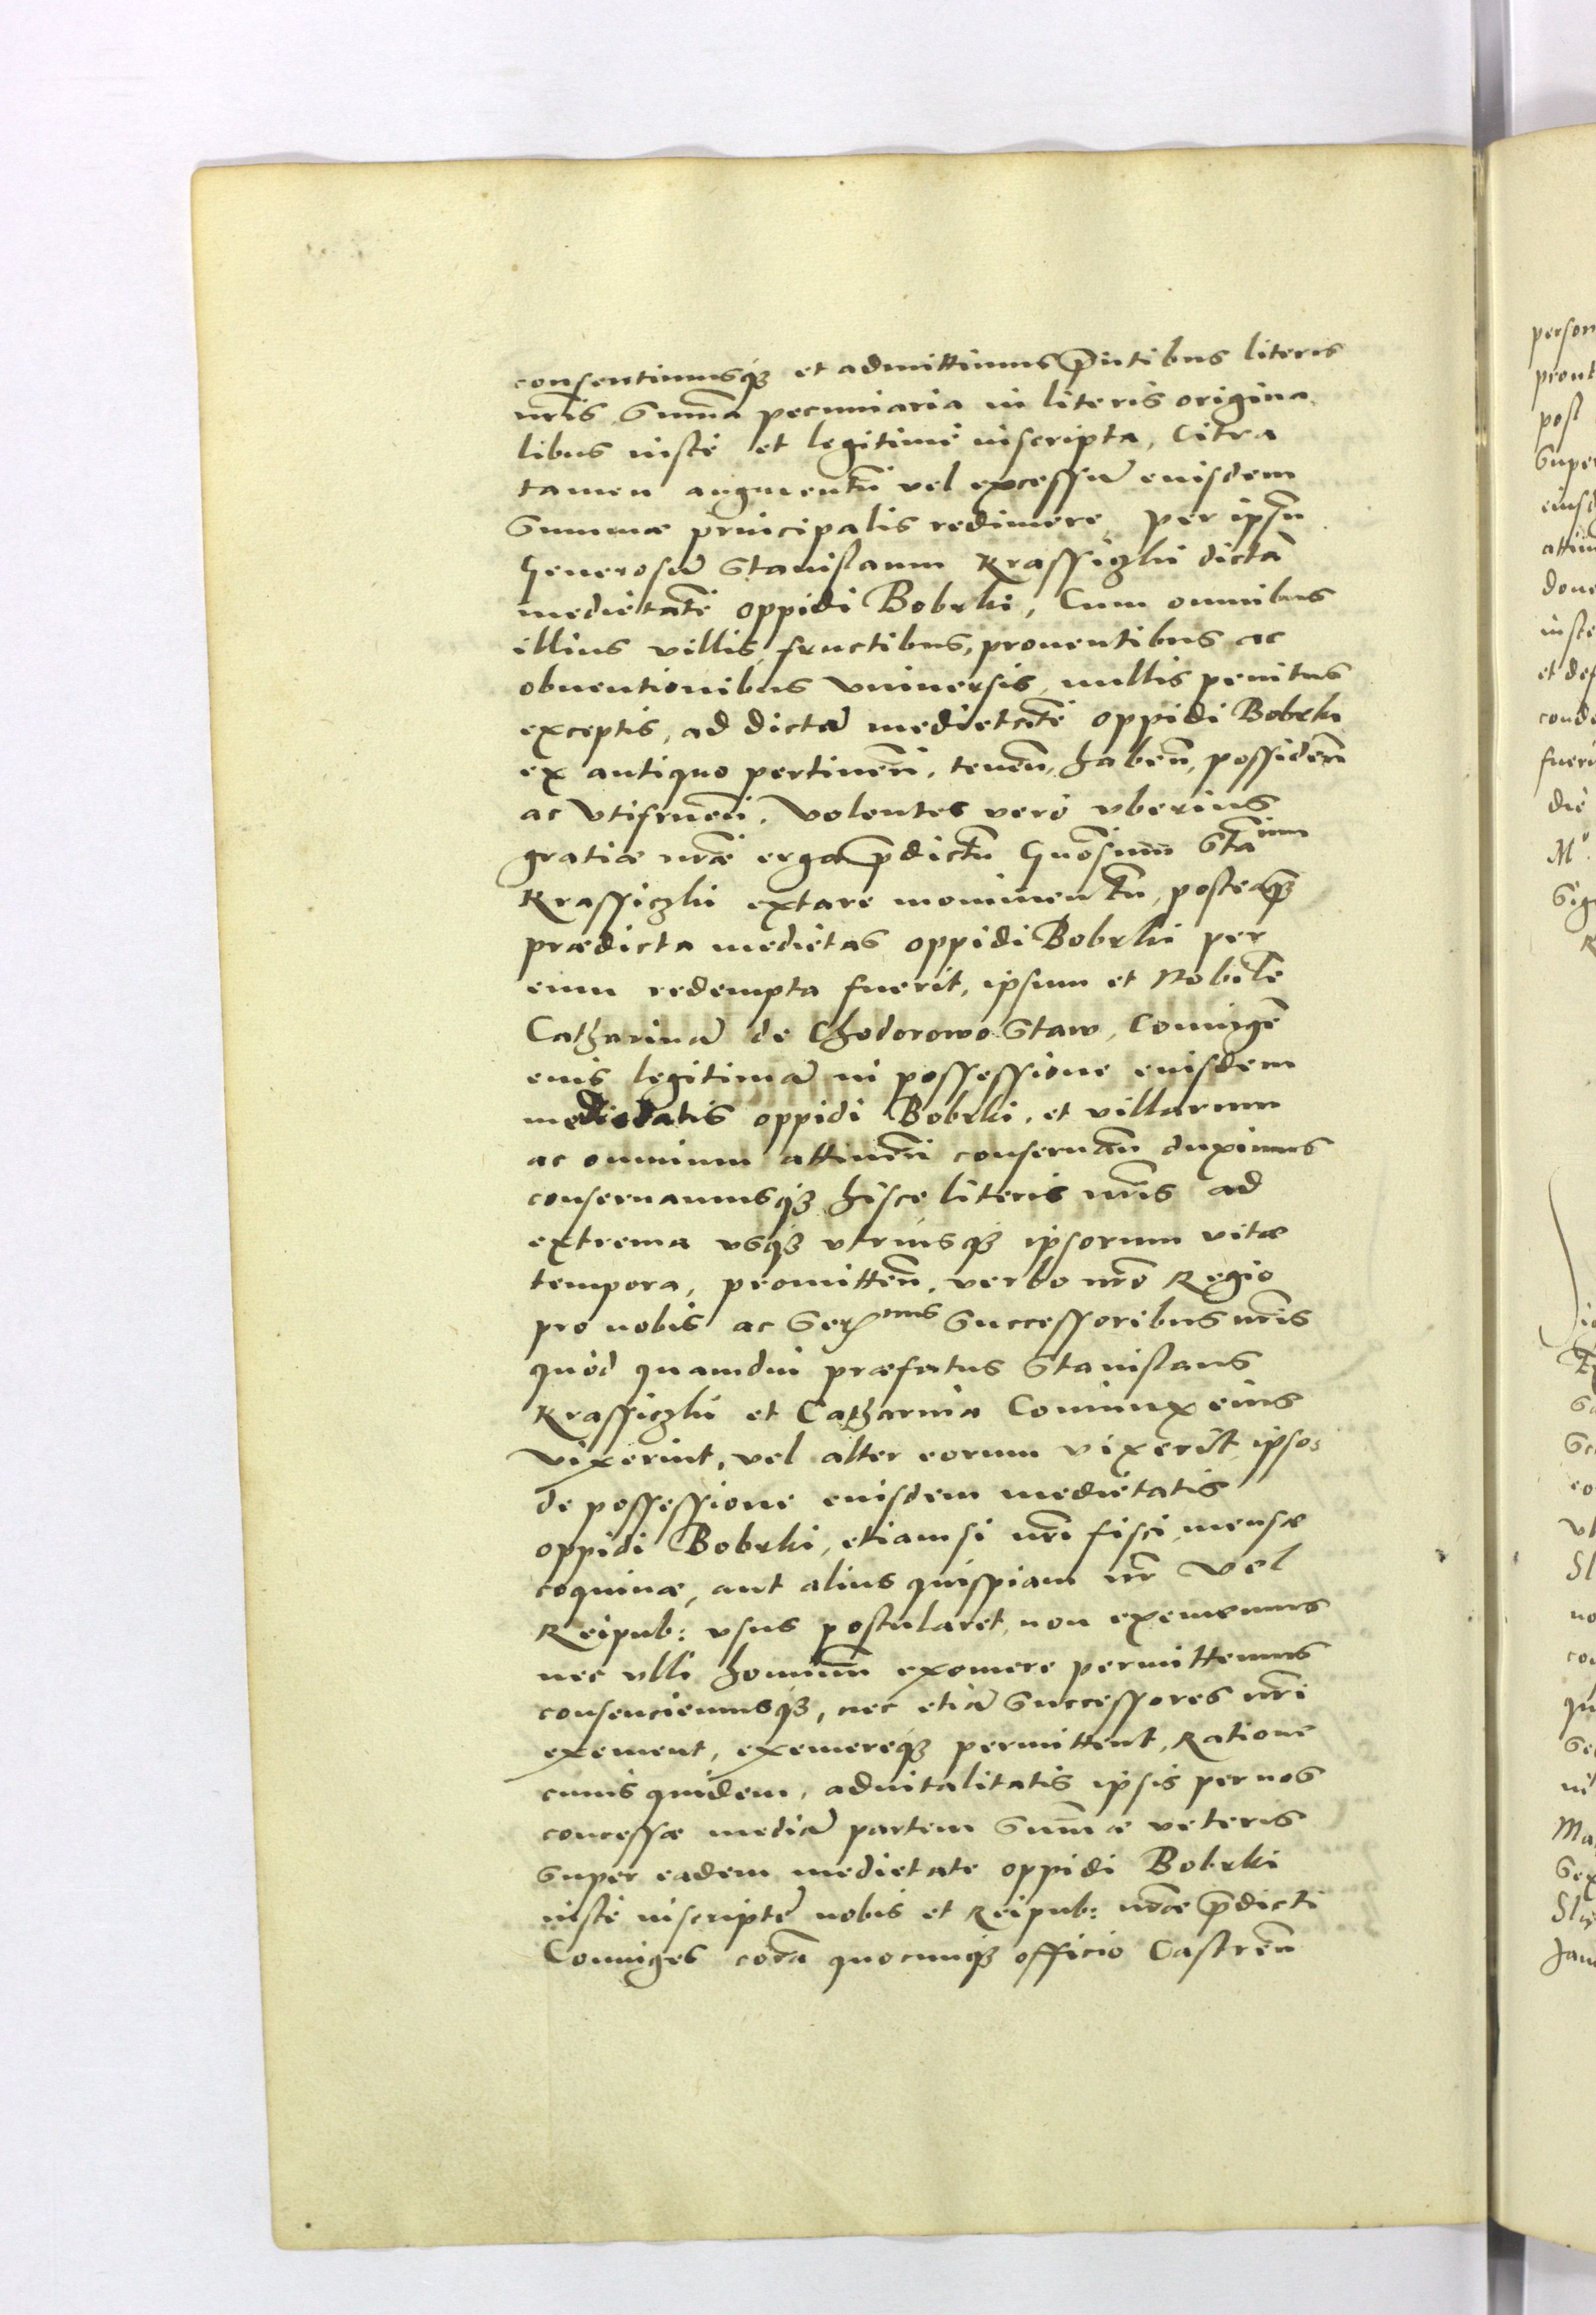 consentimusq₃ et admittimus p̄ntibus literis
nr̄is Summa pecuniaria in literis origina
libus iuste et legitime inscripta, Citra
tamen augmentū vel excessū eiusdem
Summae principalis redimere, per ipsū
Generosū Stanislaum Krassiczki dictā
medietatē oppidi Bobrki, Cum omnibus
illius villis, fructibus, prouentibus ac
obuentionibus vniuersis, nullis penitus
exceptis, ad dictā medietatē oppidi Bobrki
ex antiquo pertineñ, teneñ, habeñ, possideñ
ac vtifrueñ. Volentes vero vberius
gratiae nr̄ae erga p̄dictū Gnōsum Staum
Krassiczki extare monimentū, posteaq₃
praedicta medietas oppidi Bobrki per
eum redempta fuerit, ipsum et Nobilē
Catharinā de Chodorowo Staw, Coniugē
eius legitimā in possessione eiusdem
medietatis oppidi Bobrki, et villarum
ac omnium attineñ conseruañ duximus
conseruamusq₃ hisce literis nr̄is ad
extrema vsq₃ vtriusq₃ ipsorum vitae
tempora, promitteñ, verbo nr̄o Regio
pro nobis ac Serᵐⁱˢ Successoribus nr̄is
quòd quamdiu praefatus Stanislaus
Krassiczki et Catharina Coniunx eius
vixerint, vel alter eorum vixerit, ipsos
de possessione eiusdem medietatis
oppidi Bobrki, etiamsi nr̄i fisci, mensae
coquinae, aut alius quispiam nr̄ vel
Reipub: vsus postularet, non eximemus
nec vlli hominū eximere permittemus
consenciemusq₃, nec etiā Successores nr̄i
exement, exemereq₃ permittent, Ratione
cuius quidem, aduitalitatis ipsis per nos
concessae mediā partem Summae veteris
super eadem medietate oppidi Bobrki
iuste inscriptae nobis et Reipub: nr̄ae p̄dicti
Coniuges corā quocunq₃ officio Castreñ